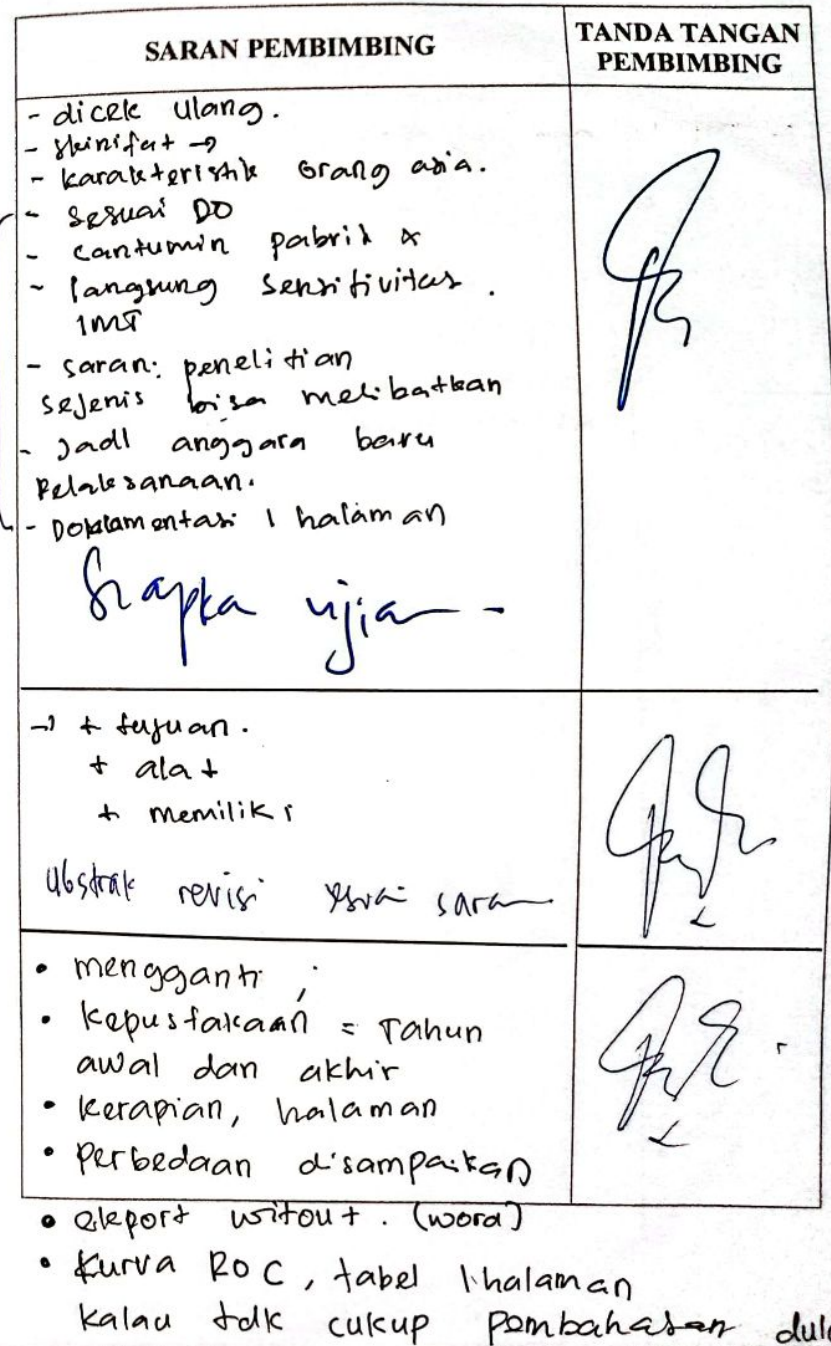 SARAN PEMBIMBING
TANDA TANGAN
PEMBIMBING
- dicek ulang.
- skinifat →
- karakteristik orang asia.
- sesuai DO
- cantumin pabrik
- langsung sensitivitas.
IMT
- saran: penelitian
sejenis bisa melibatkan
- Jadl anggara baru
Pelaksanaan.
- Dokumentasi 1 halaman
Siapka ujian -
→ + tujuan.
+ alat
+ memiliki
Abstrak revisi saran
• mengganti ;
• Kepustakaan = Tahun
awal dan akhir
• Kerapian, halaman
• Perbedaan disampaikan
• eksport witout. (word)
• Kurva ROC, tabel 1 halaman
kalau tdk cukup pembahasan dulu